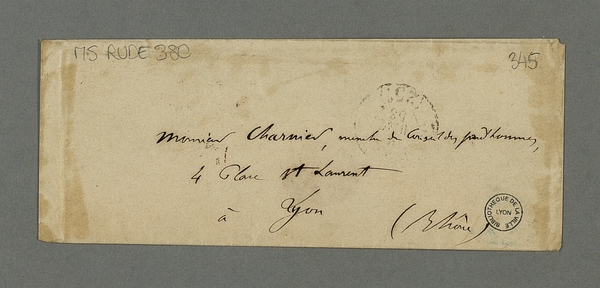 MS RUDE 380
345
Monsieur Charnier, membre du Conseil des prud'hommes,
4 Place St Laurent
à Lyon
(Rhône)
BIBLIOTHEQUE DE LA VILLE
LYON